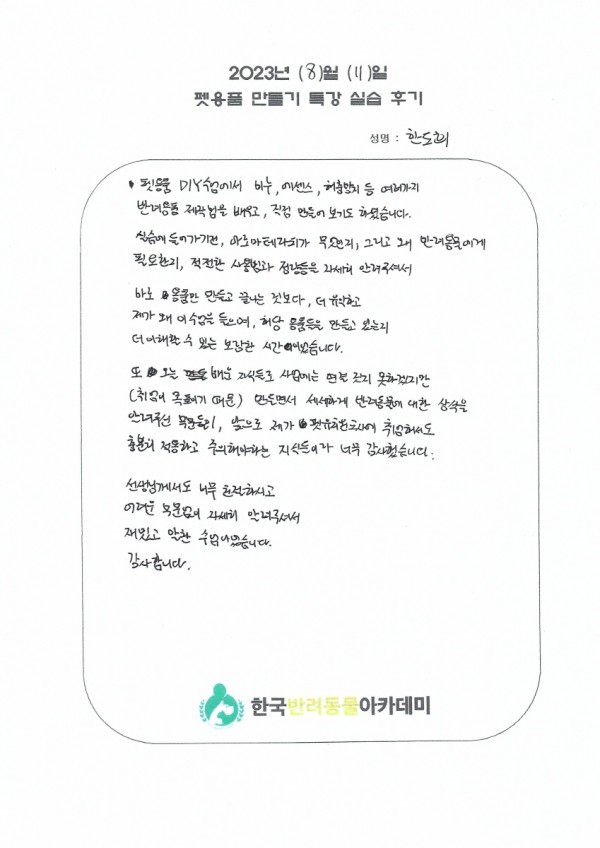 2023년 (8)월 (11)일
펫용품 만들기 특강 실습 후기
성명 : 한도희
• 펫용품 DIY수업에서 비누, 에센스, 등 여러가지
반려용품 제작법을 배우고, 직접 만들어 보기도 하였습니다.
실습에 들어가기전, 아로마테라피가 무엇인지, 그리고 왜 반려동물에게
필요한지, 적절한 사용법과 정답들을 자세히 알려주셔서
바로 용품만 만들고 끝나는 것보다, 더 유익하고
제가 왜 이수업을 들으며, 해당 용품들을 만들고 있는지
더 이해할 수 있는 보람찬 시간이었습니다.
또 오늘 배운 지식들로 사업에는 연결 짓지 못하겠지만
(취업이 목표이기 때문) 만들면서 세세하게 반려동물에 대한 상식을
알려주신 부분들이, 앞으로 제가 취업해서도
충분히 적용하고 주의해야하는 지식들이라 너무 감사했습니다.
선생님께서도 너무 친절하시고
어려운 부분없이 자세히 알려주셔서
재밌고 알찬 수업이었습니다.
감사합니다.
한국반려동물아카데미